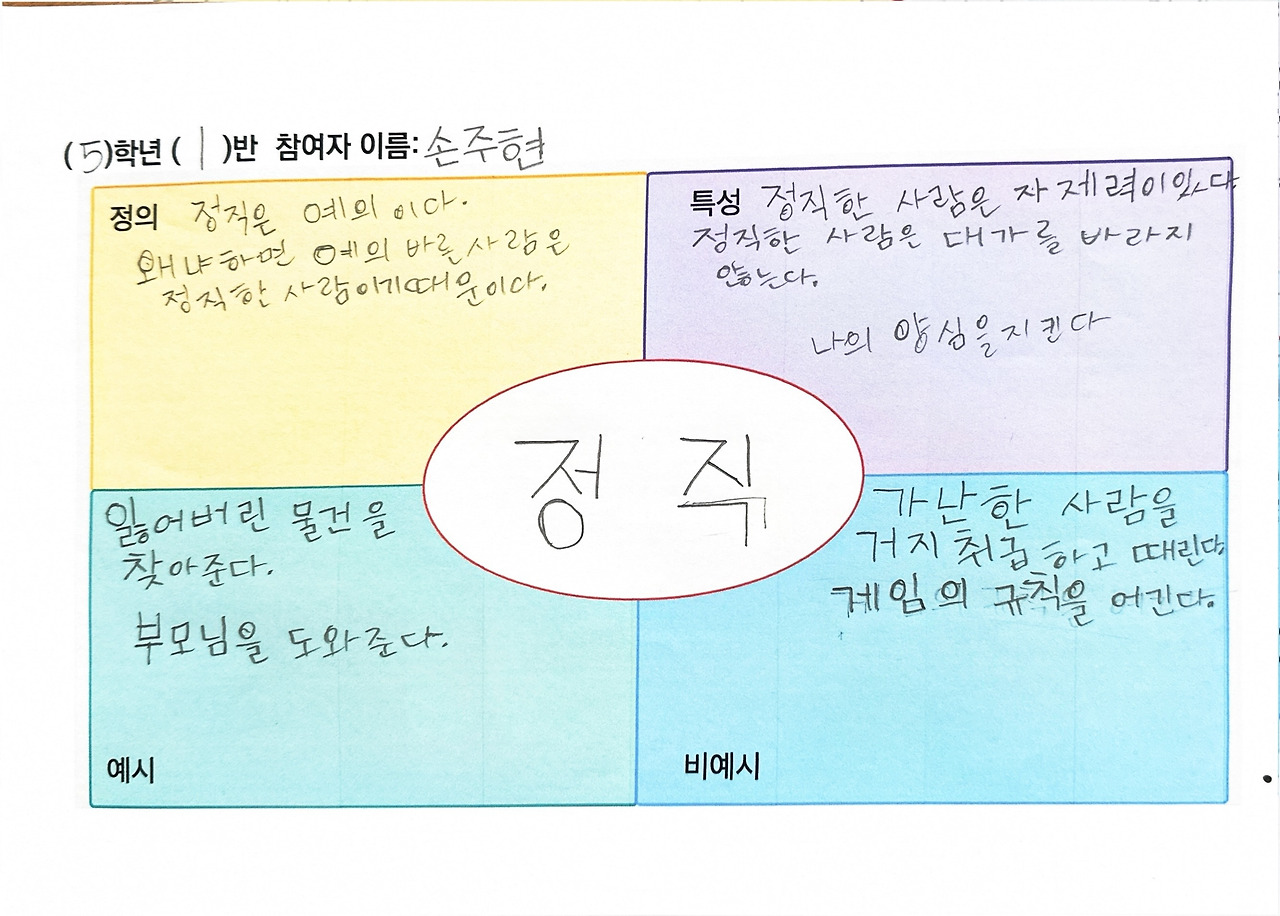 (5)학년 ( 1 )반 참여자 이름: 손주현
정의 정직은 예의 이다.
왜냐하면 예의 바른 사람은
정직한 사람이기때문이다.
특성 정직한 사람은 자제력이있다
정직한 사람은 대가를 바라지
않는다.
나의 양심을지킨다
정 직
잃어버린 물건을
찾아준다.
부모님을 도와준다.
예시
가난한 사람을
거지 취급하고 때린다.
게임의 규칙을 어긴다.
비예시